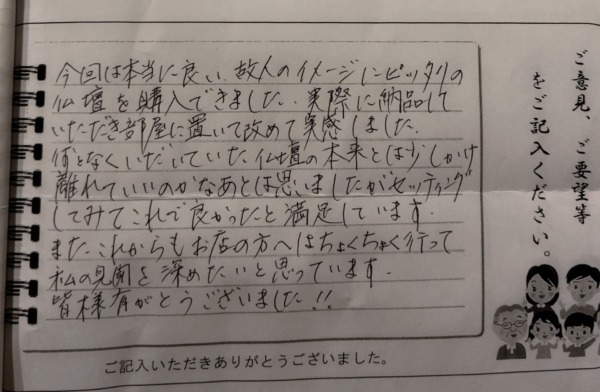 ご意見、ご要望等
をご記入ください。
今回は本当に良い、故人のイメージにピッタリの
仏壇を購入できました。実際に納品して
いただき部屋に置いて改めて実感しました。
何となくいだいていた仏壇の本来とは少しかけ
離れていいのかなあとは思いましたがセッティング
してみてこれで良かったと満足しています。
またこれからもお店の方へはちょくちょく行って
私の見聞を深めたいと思っています。
皆様有がとうございました!!
ご記入いただきありがとうございました。